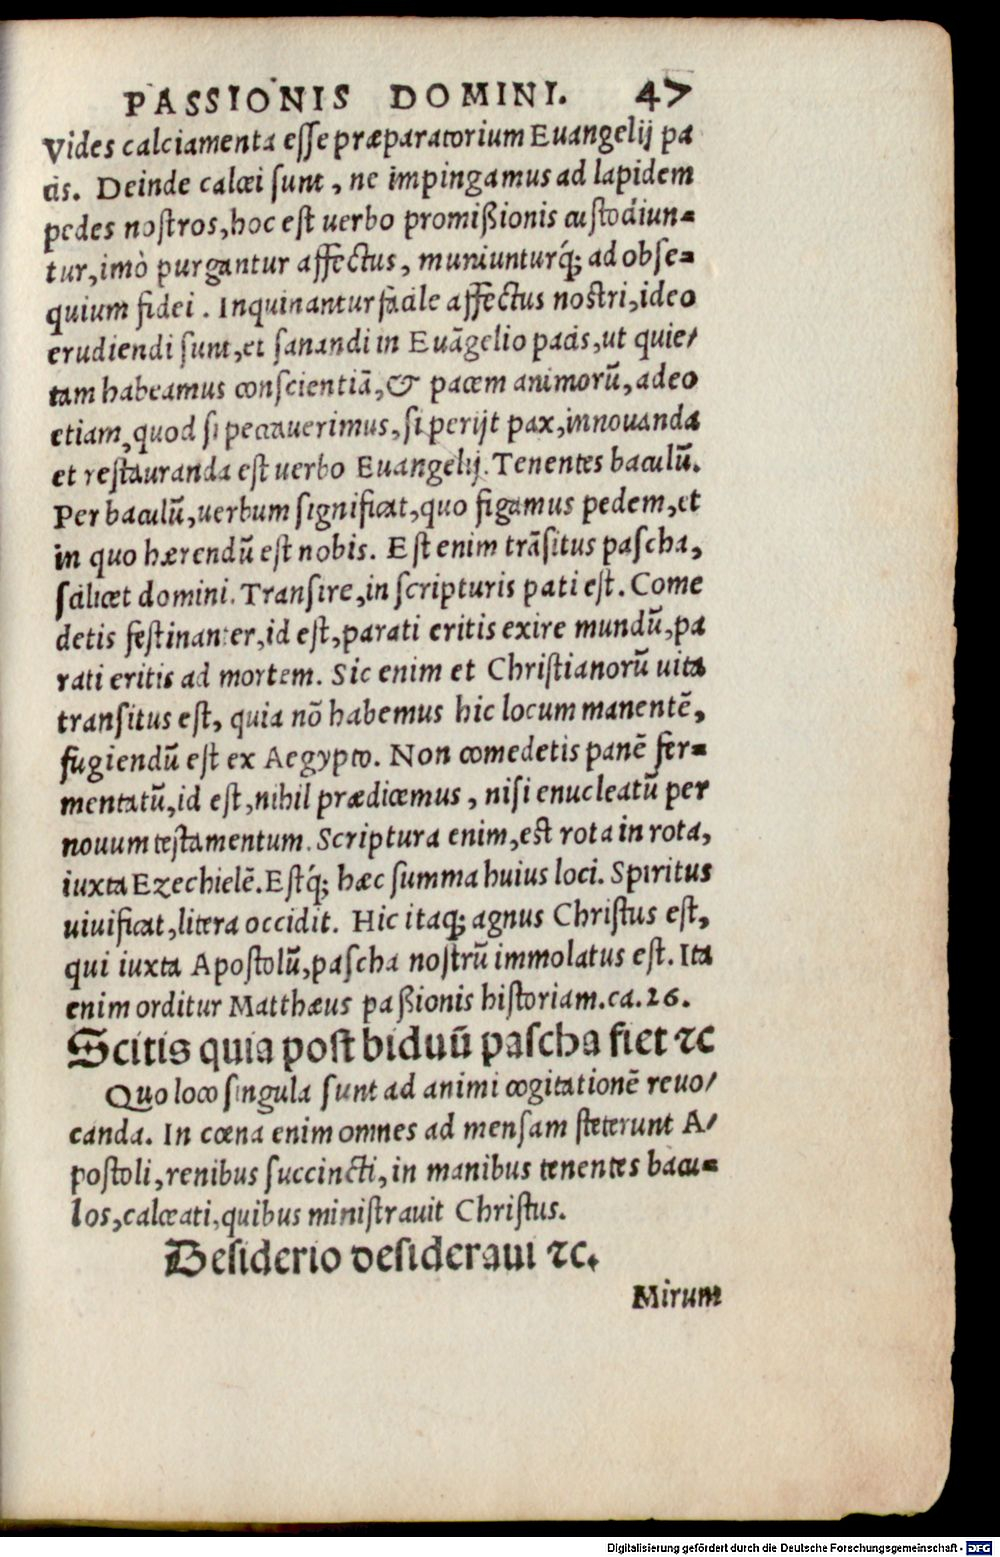 PASSIONIS DOMINI. 47
Vides calciamenta eſſe præparatorium Euangelij pa
cis. Deinde calcei ſunt, ne impingamus ad lapidem
pedes noſtros, hoc eſt uerbo promiſſionis cuſtodiun-
tur, imò purgantur affectus, muniunturq́; ad obſe-
quium fidei. Inquinantur facile affectus noſtri, ideo
erudiendi ſunt, et ſanandi in Euāgelio pacis, ut quie/
tam habeamus conſcientiā, & pacem animorū, adeo
etiam, quod ſi peccauerimus, ſi perijt pax, innouanda
et reſtauranda eſt uerbo Euangelij. Tenentes baculū.
Per baculū, uerbum ſignificat, quo figamus pedem, et
in quo hærendū eſt nobis. Eſt enim trāſitus paſcha,
ſcilicet domini. Tranſire, in ſcripturis pati eſt. Come
detis feſtinanter, id eſt, parati eritis exire mundū, pa
rati eritis ad mortem. Sic enim et Chriſtianorū uita
tranſitus eſt, quia nō habemus hic locum manentē,
fugiendū eſt ex Aegypto. Non comedetis panē fer-
mentatū, id eſt, nihil prædicemus, niſi enucleatū per
nouum teſtamentum. Scriptura enim, eſt rota in rota,
iuxta Ezechielē. Eſtq́; hæc ſumma huius loci. Spiritus
uiuificat, litera occidit. Hic itaq; agnus Chriſtus eſt,
qui iuxta Apoſtolū, paſcha noſtrū immolatus eſt. Ita
enim orditur Matthæus paſſionis hiſtoriam. ca. 26.
Scitis quia poſt biduū paſcha fiet ⁊c
Quo loco ſingula ſunt ad animi cogitationē reuo/
canda. In cœna enim omnes ad menſam ſteterunt A/
poſtoli, renibus ſuccincti, in manibus tenentes bacu-
los, calceati, quibus miniſtrauit Chriſtus.
Deſiderio deſideraui ⁊c.
Mirum
Digitalisierung gefördert durch die Deutsche Forschungsgemeinschaft - DFG